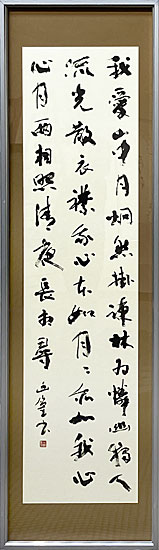 我愛山中月炯然掛疎林為憐幽獨人
流光散衣襟我心本如月々亦如我心
心月兩相照清夜長相尋